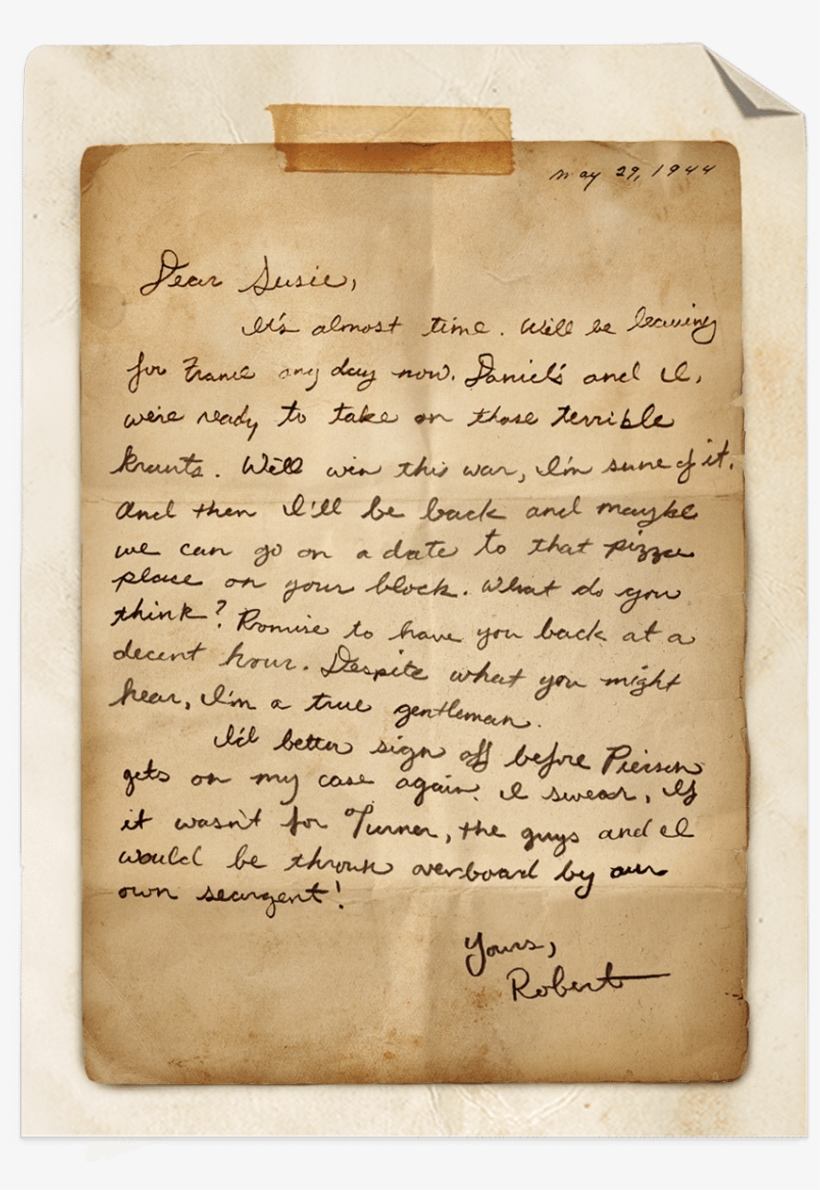 May 29, 1944
Dear Susie,
It's almost time. We'll be leaving
for France any day now. Daniels and I,
we're ready to take on those terrible
krauts. We'll win this war, I'm sure of it.
And then I'll be back and maybe
we can go on a date to that pizza
place on your block. What do you
think? Promise to have you back at a
decent hour. Despite what you might
hear, I'm a true gentleman.
I'd better sign off before Pierson
gets on my case again. I swear, if
it wasn't for Turner, the guys and I
would be thrown overboard by our
own seargent!
Yours,
Robert